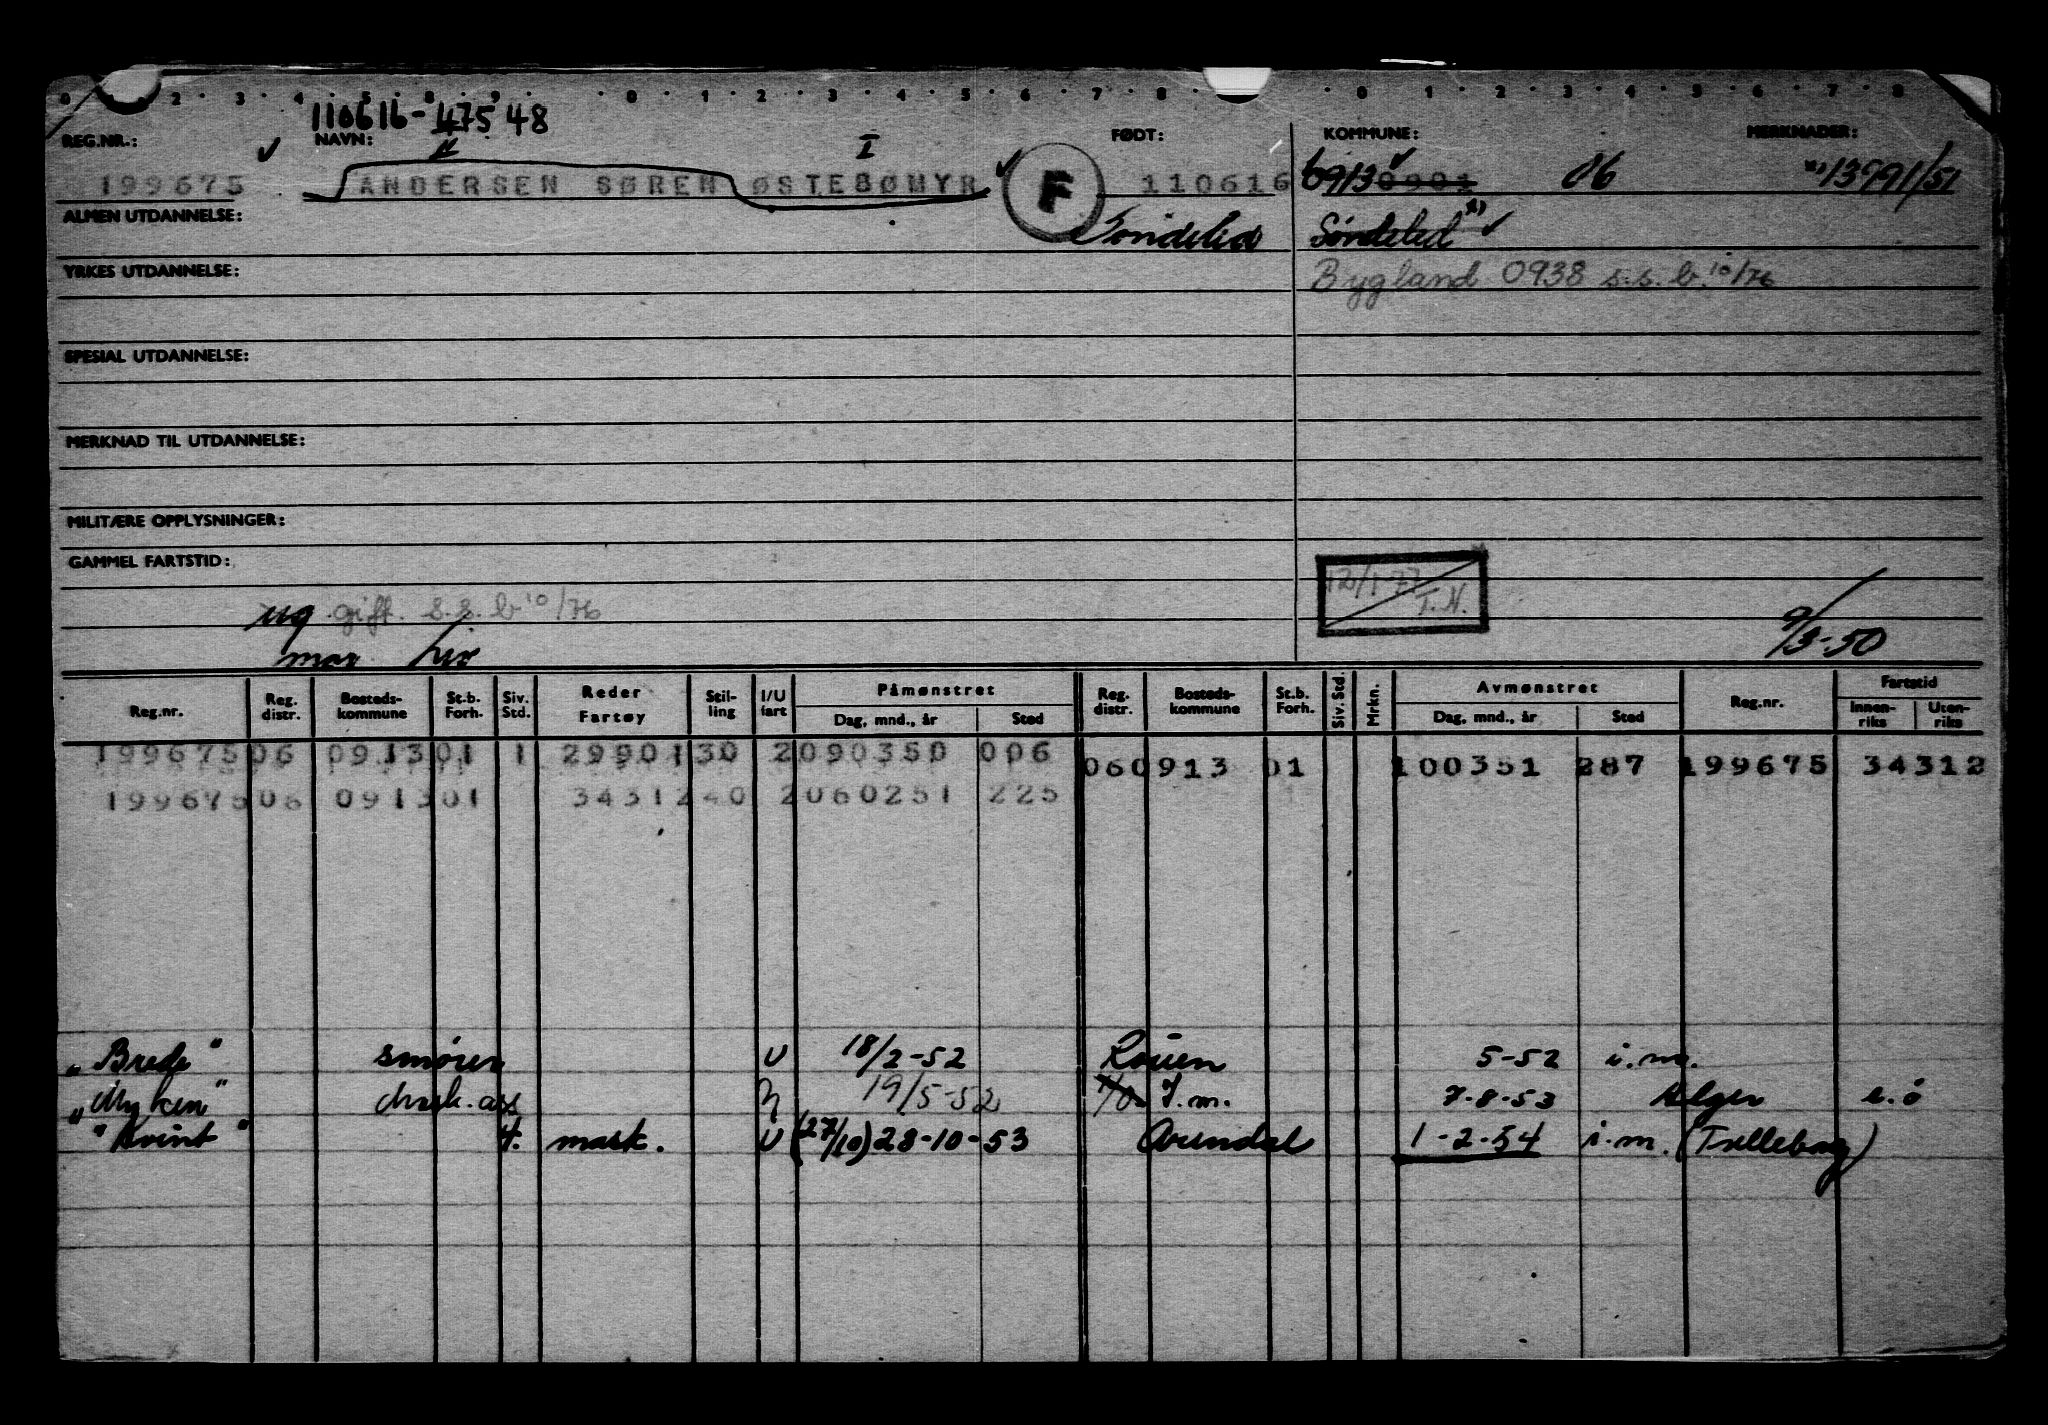 0 2 3 4 5 8 9 0 1 2 3 4 5 6 7 8 0 1 2 3 4 5 6 7 8
110616-47548
REG.NR.: NAVN: FØDT: KOMMUNE: MERKNADER:
I
199675 ANDERSEN SØREN ØSTEBØMYR F 110616 0913 0901 06 x) 13991/51
ALMEN UTDANNELSE: Søndeled x)
YRKES UTDANNELSE: Bygland 0938 s.s.b. 10/76
SPESIAL UTDANNELSE:
MERKNAD TIL UTDANNELSE:
MILITÆRE OPPLYSNINGER:
GAMMEL FARTSTID:
12/1-77 T.N.
ug gift. s.s.b 10/76
9/3-50
Reg.nr. Reg. distr. Bosteds-kommune St.b. Forh. Siv. Std. Reder Fartøy Stil-ling I/U fart Påmønstret Dag, mnd., år Sted Reg. distr. Bosteds-kommune St.b. Forh. Siv. Std. Mrkn. Avmønstret Dag, mnd., år Sted Reg.nr. Fartstid Innen-riks Uten-riks
199675 06 0913 01 1 29901 30 2 090350 006 06 0913 01 100351 287 199675 34312
199675 06 0913 01 34312 40 2 060251 225
"Brede" smører U 18/2-52 Rouen 5-52 i.m.
"Myken" mask. ass 19/5-52 I.m. 7-8-53 Alger e.ø
"Kvint" 4. mask. U (27/10) 28-10-53 Arendal 1-2-54 i.m. (Trelleborg)